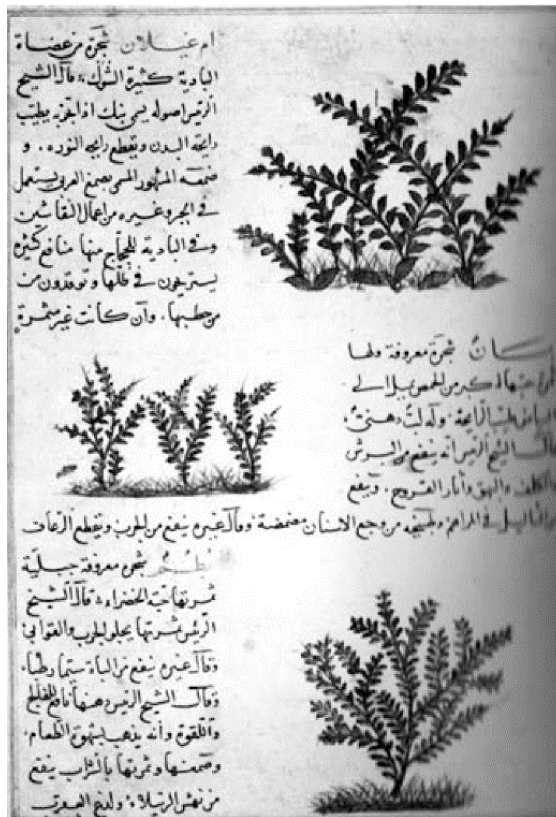 ام غيلان شجرة من عضاة
البادية كثيرة الشوك قال الشيخ
الرئيس اصوله اذا يطيب
رايحة البدن ويقطع رايحة النورة و
صمغه المشهور المسمى بصمغ العربي يستعمل
في الحبر وغيره من اعمال النقاشين
وفي البادية للحجاج منها منافع كثيرة
يستريحون في ظلها ويوقدون من
من حطبها وان كانت غير مثمرة
شجرة معروفة ولها
اكبر من الحمص الى
البياض طيب الرايحة وله لب دهني
قال الشيخ الرئيس انه ينفع من البرش
والكلف والبهق واثار القروح وينفع
في المراهم وطبيخه من وجع الاسنان مضمضة وقال غيره ينفع من الجرب ويقطع الرعاف
بطم شجرة معروفة جبلية
ثمرتها حبة الخضراء قال الشيخ
الرئيس ثمرتها يجلو الجرب والقوابي
وقال غيره ينفع من الباه سيما رطبا
وقال الشيخ الرئيس دهنها نافع للفالج
واللقوة وانه يذهب بشهوة الطعام
وصمغها وثمرتها بالشراب ينفع
من نهش الرتيلاء ولدغ العقرب